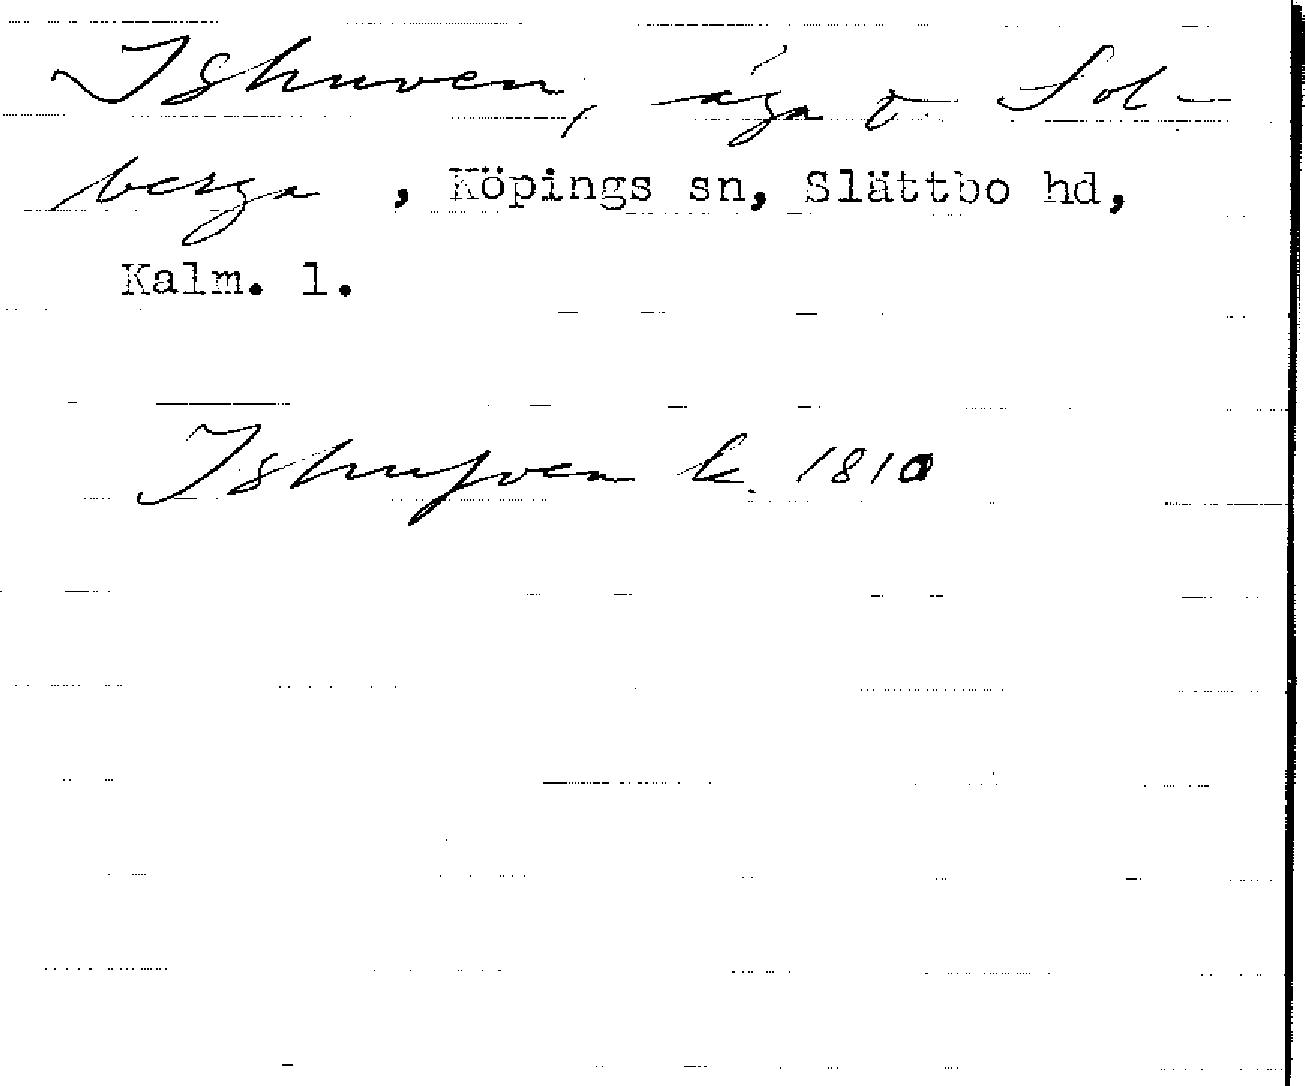 Ishuven, äga o Sol-
berga , Köpings sn, Slättbo hd,
Kalm. l.
Ishufven k. 1810